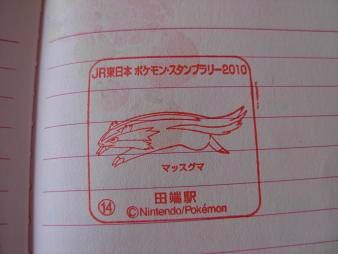 JR東日本 ポケモン・スタンプラリー2010
マッスグマ
田端駅
⑭
©Nintendo/Pokémon